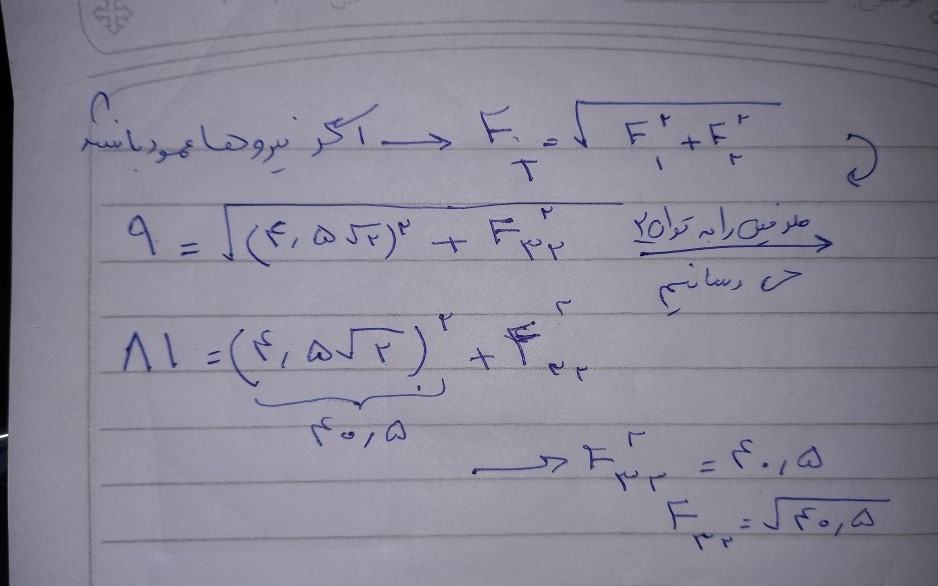 اگر نیروها عمود باشند → F_T = √(F_۱^۲ + F_۲^۲)
۹ = √((۴,۵√۲)^۲ + F_۳۲^۲) طرفین را به توان ۲ می رسانیم →
۸۱ = (۴,۵√۲)^۲ + F_۳۲^۲
۴۰,۵
→ F_۳۲^۲ = ۴۰,۵
F_۳۲ = √۴۰,۵